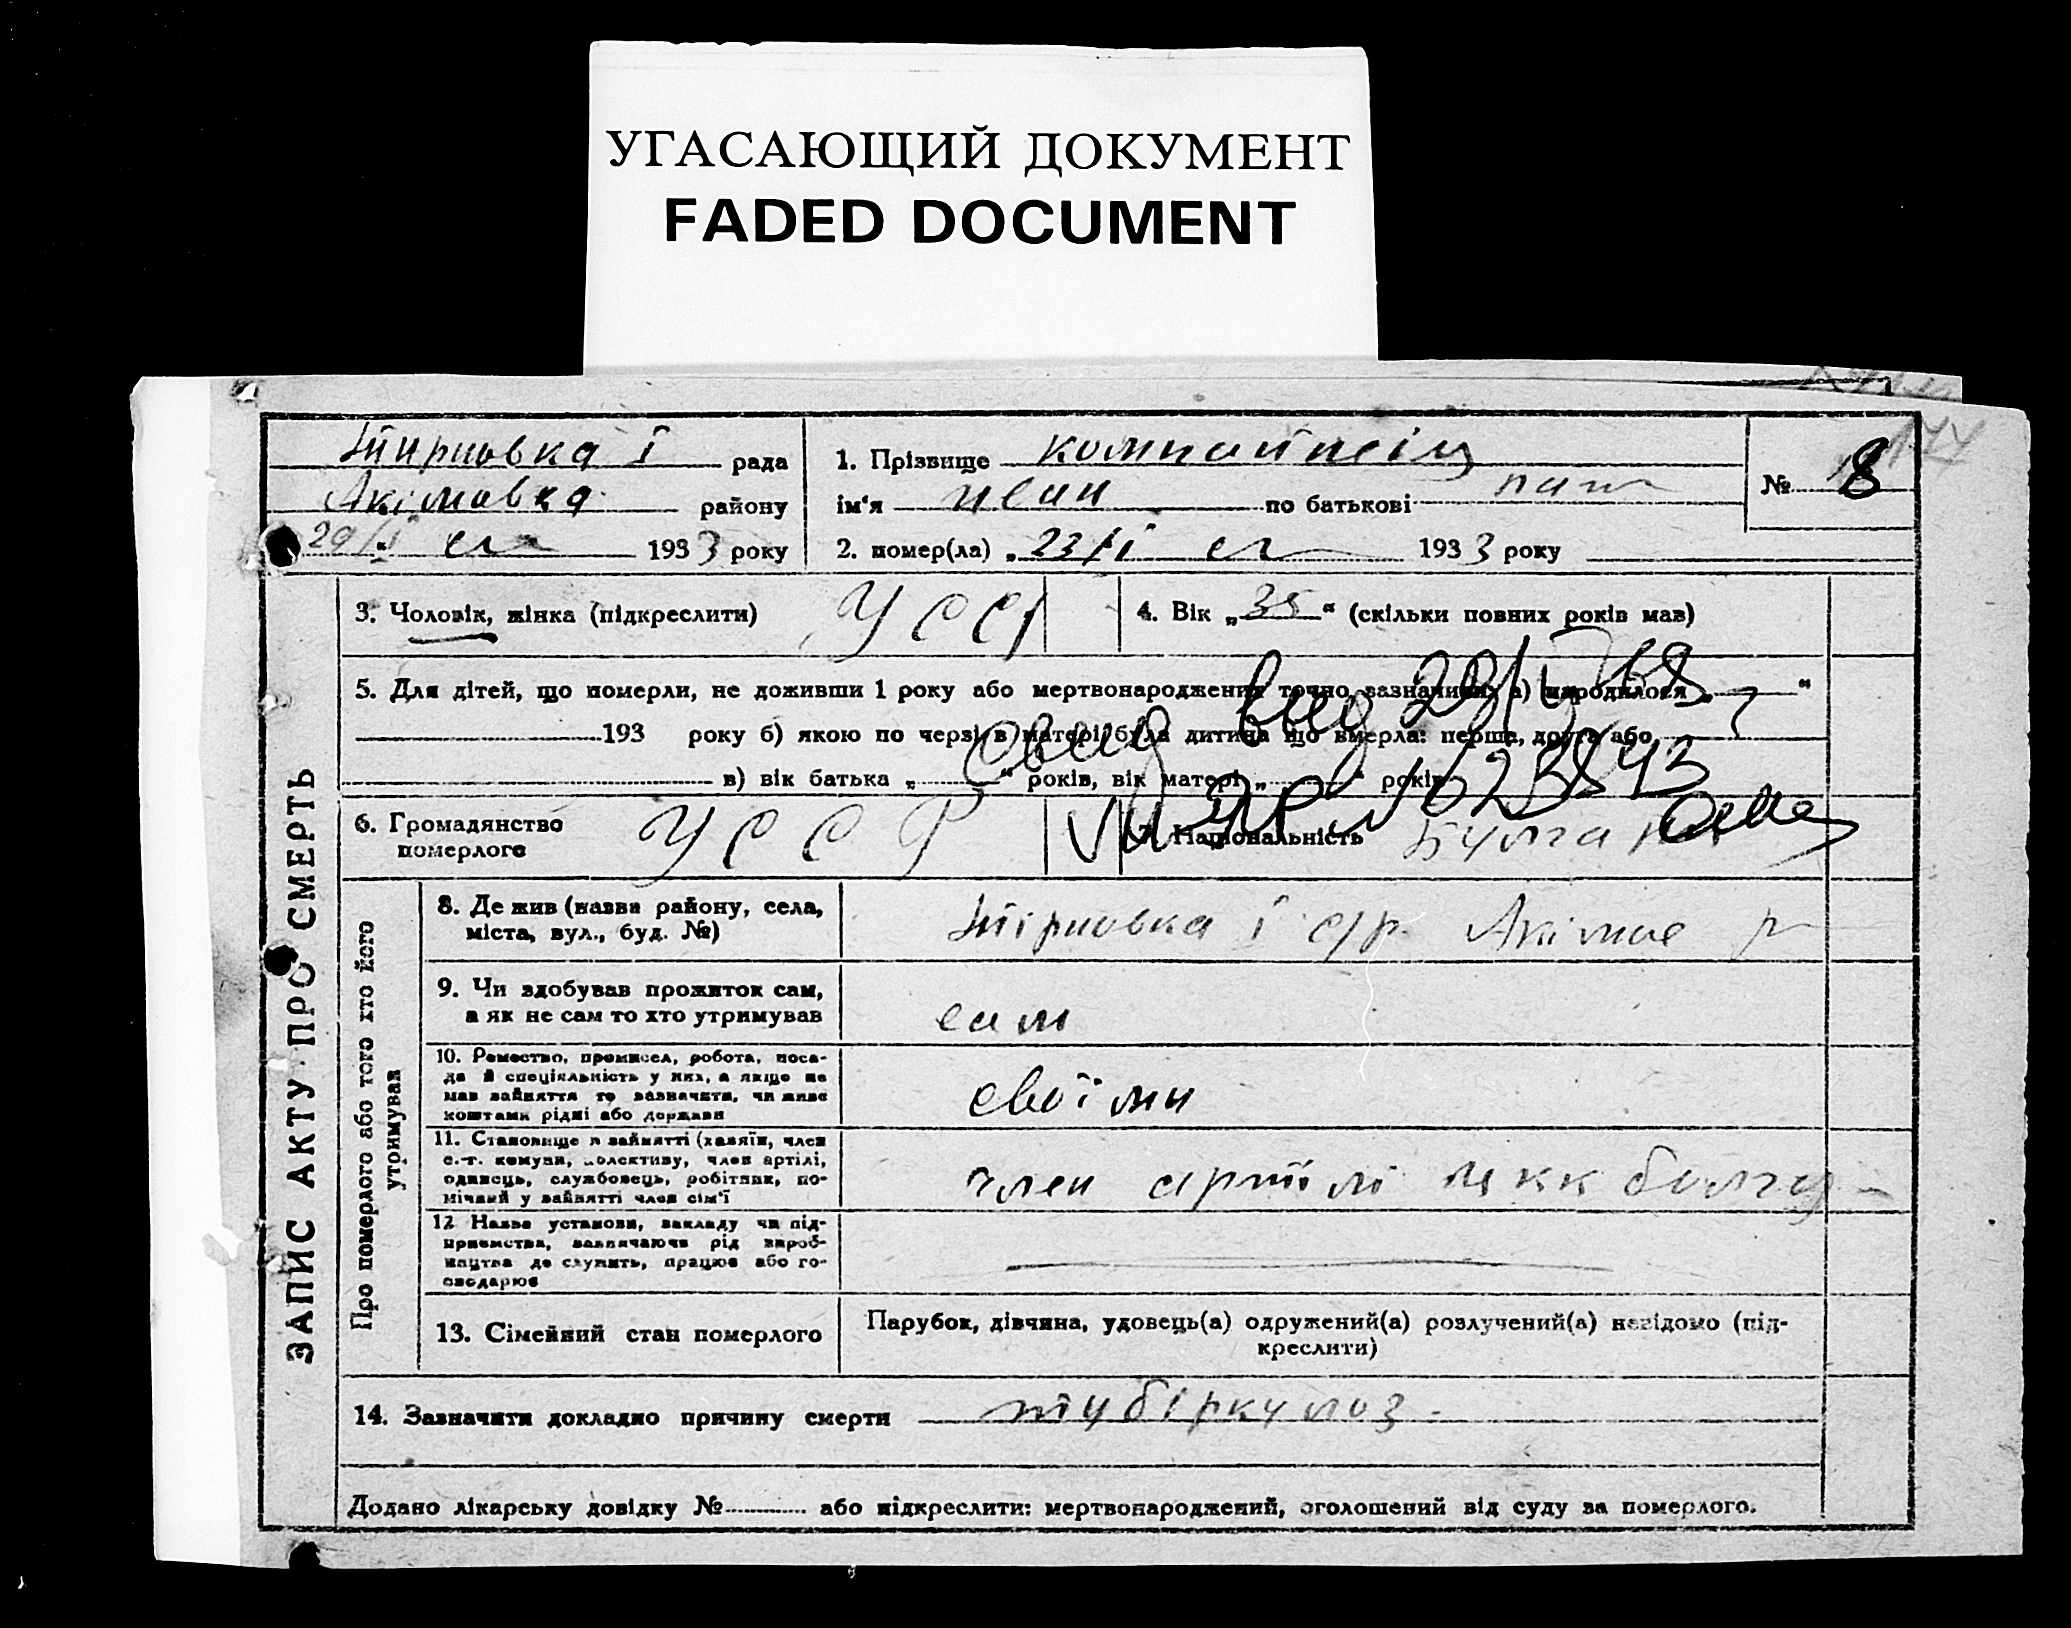 УГАСАЮЩИЙ ДОКУМЕНТ
FADED DOCUMENT
Тирновка І рада
Акімовка району
20/І 1933 року
1. Прізвище
ім'я Иван по батькові
2. помер(ла) „23/І 1933 року
№ 8
ЗАПИС АКТУ ПРО СМЕРТЬ
3. Чоловік, жінка (підкреслити) УССР
4. Вік „35“ (скільки повних років мав)
5. Для дітей, що померли, не доживши 1 року або мертвонароджених точно зазначити: а) народилося „ “
193 року б) якою по черзі в матері була дитина що вмерла: перша, друга або
в) вік батька „ “ років, вік матері „ “ років
6. Громадянство померлого УССР
7. Національність
Про померлого або того хто його утримував
8. Де жив (назва району, села,
міста, вул., буд. №)
Тірновка І с/р. Акімов р
9. Чи здобував прожиток сам,
а як не сам то хто утримував
сам
10. Ремество, промисел, робота, поса-
да й спеціяльність у них, а якщо не
мав зайняття то зазначити, чи живе
коштами рідні або держави
своїми
11. Становище в зайнятті (хазяїн, член
с.-г. комуни, колективу, член артілі,
одинець, службовець, робітник, по-
мічний у зайнятті член сім'ї
член артілі
12 Назва установи, закладу чи під-
приємства, зазначаючи рід вироб-
ництва де служить, працює або го-
сподарює
13. Сімейний стан померлого
Парубок, дівчина, удовець(а) одружений(а) розлучений(а) невідомо (під-
креслити)
14. Зазначити докладно причину смерти тубіркулоз
Додано лікарську довідку № або підкреслити: мертвонароджений, оголошений від суду за померлого.